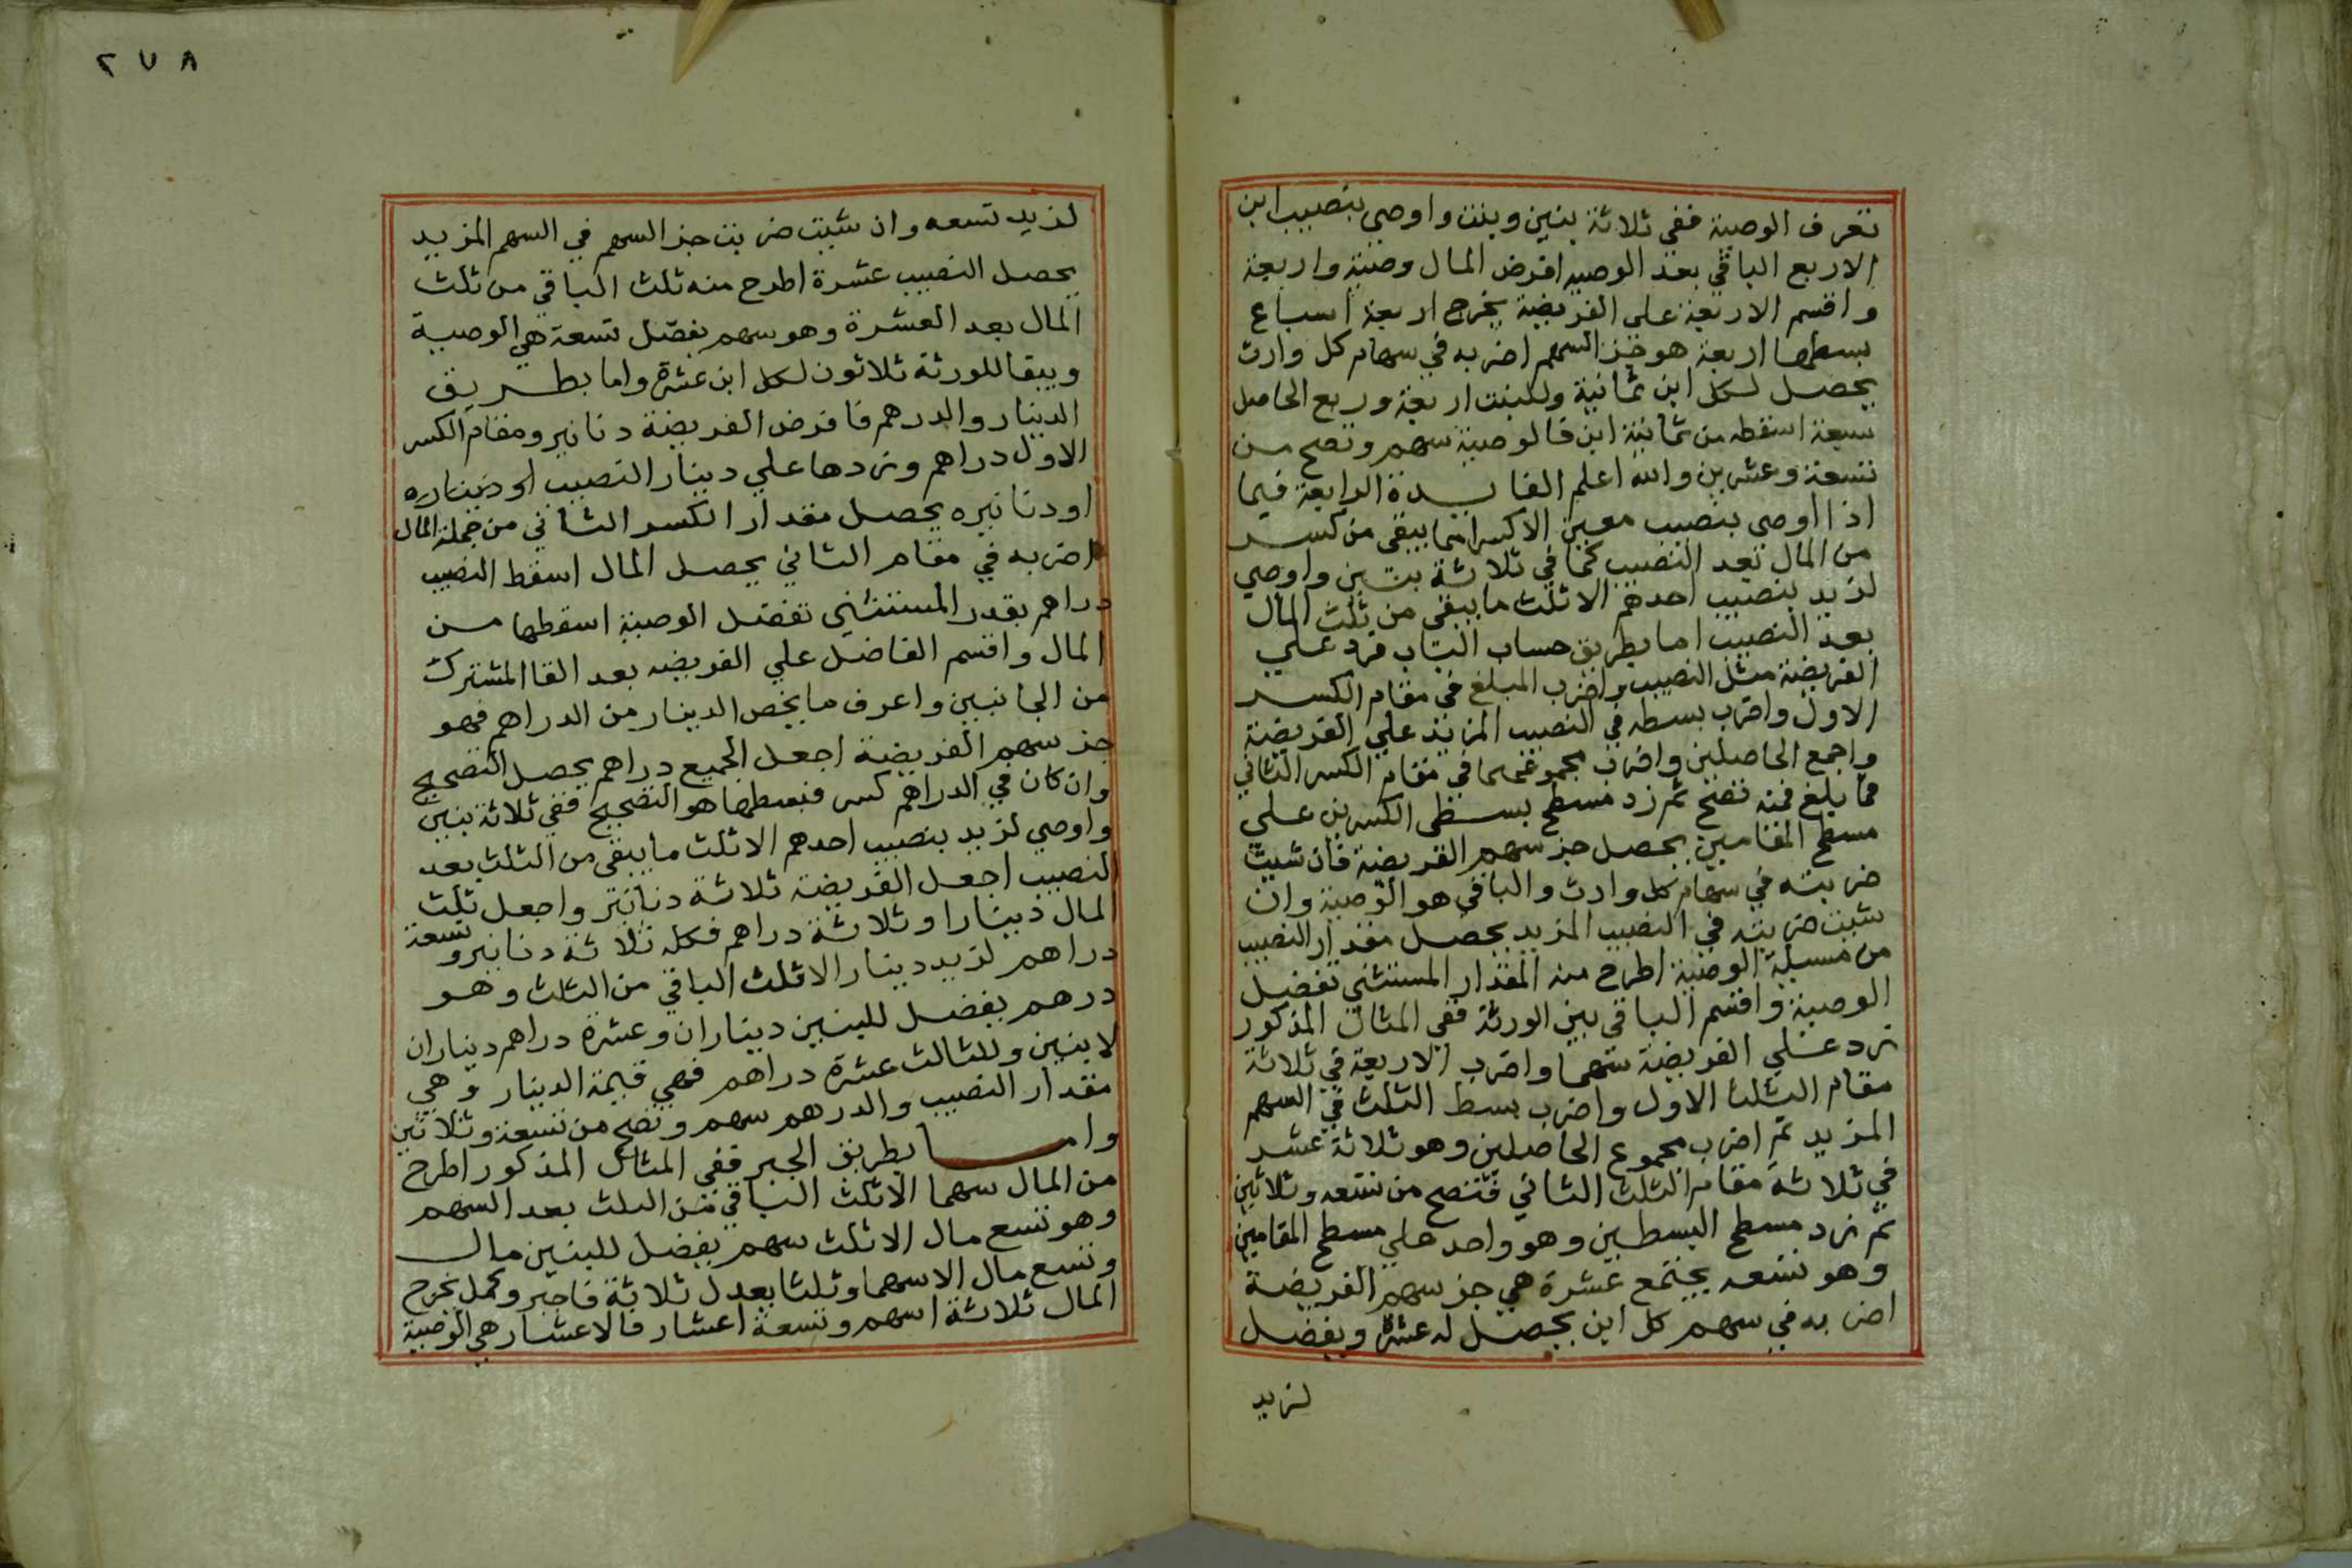 تعرف الوصية ففي ثلاثة بنين وبنت واوصي بنصيب ابن
الاربع الباقي بعد الوصيه افرض المال وصية واربعة
واقسم الاربعة علي الفريضة يخرج اربعة اسباع
بسطها اربعة هو جز السهم اضربه في سهام كل وارث
يحصل لكل ابن ثمانية وللبنت اربعة وربع الحاصل
سبعة اسقطه من ثمانية ابن فالوصية سهم وتصح من
تسعة وعشرين والله اعلم الفايدة الرابعة فيما
اذا اوصي بنصيب معين الا كسرا مما يبقي من كسر
من المال بعد النصيب كما في ثلاثة بنين واوصي
لزيد بنصيب احدهم الا ثلث ما يبقي من ثلث المال
بعد النصيب اما بطريق حساب الباب فزد علي
الفريضة مثل النصيب واضرب المبلغ في مقام الكسر
الاول واضرب بسطه في النصيب المزيد علي الفريضة
واجمع الحاصلين واضرب مجموعهما في مقام الكسر الثاني
فما بلغ فمنه تصح ثم زد مسطح بسطي الكسرين علي
مسطح المقامين يحصل جز سهم الفريضة فان شيت
ضربته في سهام كل وارث والباقي هو الوصية وان
شيت ضربته في النصيب المزيد يحصل مقدار النصيب
من مسيلة الوصية اطرح منه المقدار المستثني تفضل
الوصية واقسم الباقي بين الورثة ففي المثال المذكور
زد علي الفريضة سهما واضرب الاربعة في ثلاثة
مقام الثلث الاول واضرب بسط الثلث في السهم
المزيد ثم اضرب مجموع الحاصلين وهو ثلاثة عشر
في ثلاثة مقام الثلث الثاني فتصح من تسعه وثلاثين
ثم زد مسطح البسطين وهو واحد علي مسطح المقامين
وهو تسعه يجتمع عشرة هي جز سهم الفريضة
اضربه في سهم كل ابن يحصل له عشرة ويفضل
لزيد
٢٧٨
لزيد تسعه وان شيت ضربت جز السهم في السهم المزيد
يحصل النصيب عشرة اطرح منه ثلث الباقي من ثلث
المال بعد العشرة وهو سهم يفضل تسعة هي الوصية
ويبقا للورثة ثلاثون لكل ابن عشرة واما بطريق
الدينار والدرهم فافرض الفريضة دنانير ومقام الكسر
الاول دراهم وزدها علي دينار النصيب او ديناريه
او دنانيره يحصل مقدار الكسر الثاني من جملة المال
اضربه في مقام الثاني يحصل المال اسقط النصيب
دراهم بقدر المستثني تفضل الوصية اسقطها من
المال واقسم الفاضل علي الفريضه بعد القا المشترك
من الجانبين واعرف ما يخص الدينار من الدراهم فهو
جز سهم الفريضة اجعل الجميع دراهم يحصل التصحيح
وان كان في الدراهم كسر فبسطها هو التصحيح ففي ثلاثة بنين
واوصي لزيد بنصيب احدهم الا ثلث ما يبقي من الثلث بعد
النصيب اجعل الفريضة ثلاثة دنانير واجعل ثلث
المال دينارا وثلاثة دراهم فكله ثلاثة دنانير وتسعة
دراهم لزيد دينار الا ثلث الباقي من الثلث وهو
درهم يفضل للبنين ديناران وعشرة دراهم ديناران
لابنين وللثالث عشرة دراهم فهي قيمة الدينار وهي
مقدار النصيب والدرهم سهم وتصح من تسعة وثلاثين
واما بطريق الجبر ففي المثال المذكور اطرح
من المال سهما الا ثلث الباقي من الثلث بعد السهم
وهو تسع مال الا ثلث سهم يفضل للبنين مال
وتسع مال الا سهما وثلثا يعدل ثلاثة فاجبر وكمل يخرج
المال ثلاثة اسهم وتسعة اعشار فالاعشار هي الوصية